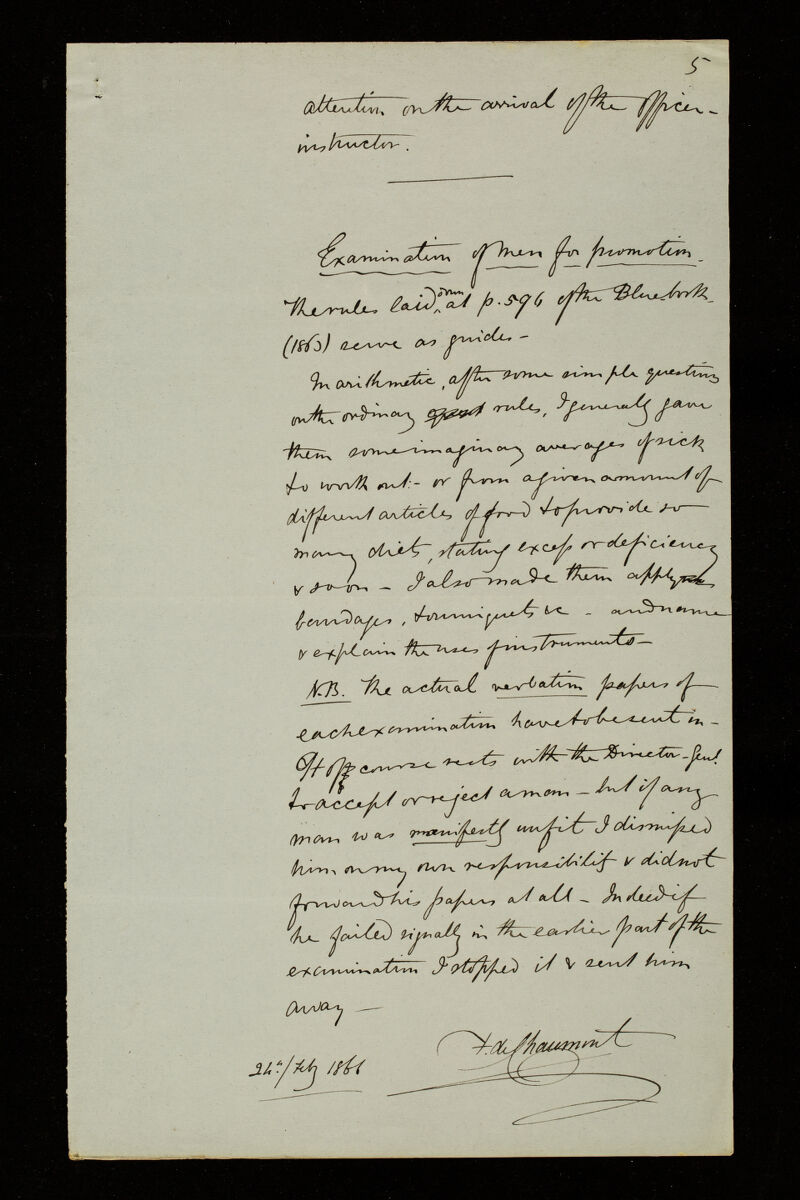 5
attention on the arrival of the officer-
instructor.
Examination of men for promotion.
The rules laid down at p. 596 of the Blue-book.
(1863) serve as guides -
In arithmetic, after some simple questions
on the ordinary rules, I generally gave
them some imaginary averages of sick
to work out - or from a given amount of
different articles of food to provide so
many diets, stating excess or deficiency
& so on - I also made them apply
bandages, tourniquets &c - and name
& explain the uses of instruments -
N.B. The actual verbatim papers of
each examination have to be sent in -
It of course rests with the Director-Genl.
to accept or reject a man - but if any
man was manifestly unfit I dismissed
him on my own responsibility & did not
forward his papers at all - Indeed if
he failed signally in the earlier part of the
examination I stopped it & sent him
away -
F. de Chaumont
24th/Feby 1866